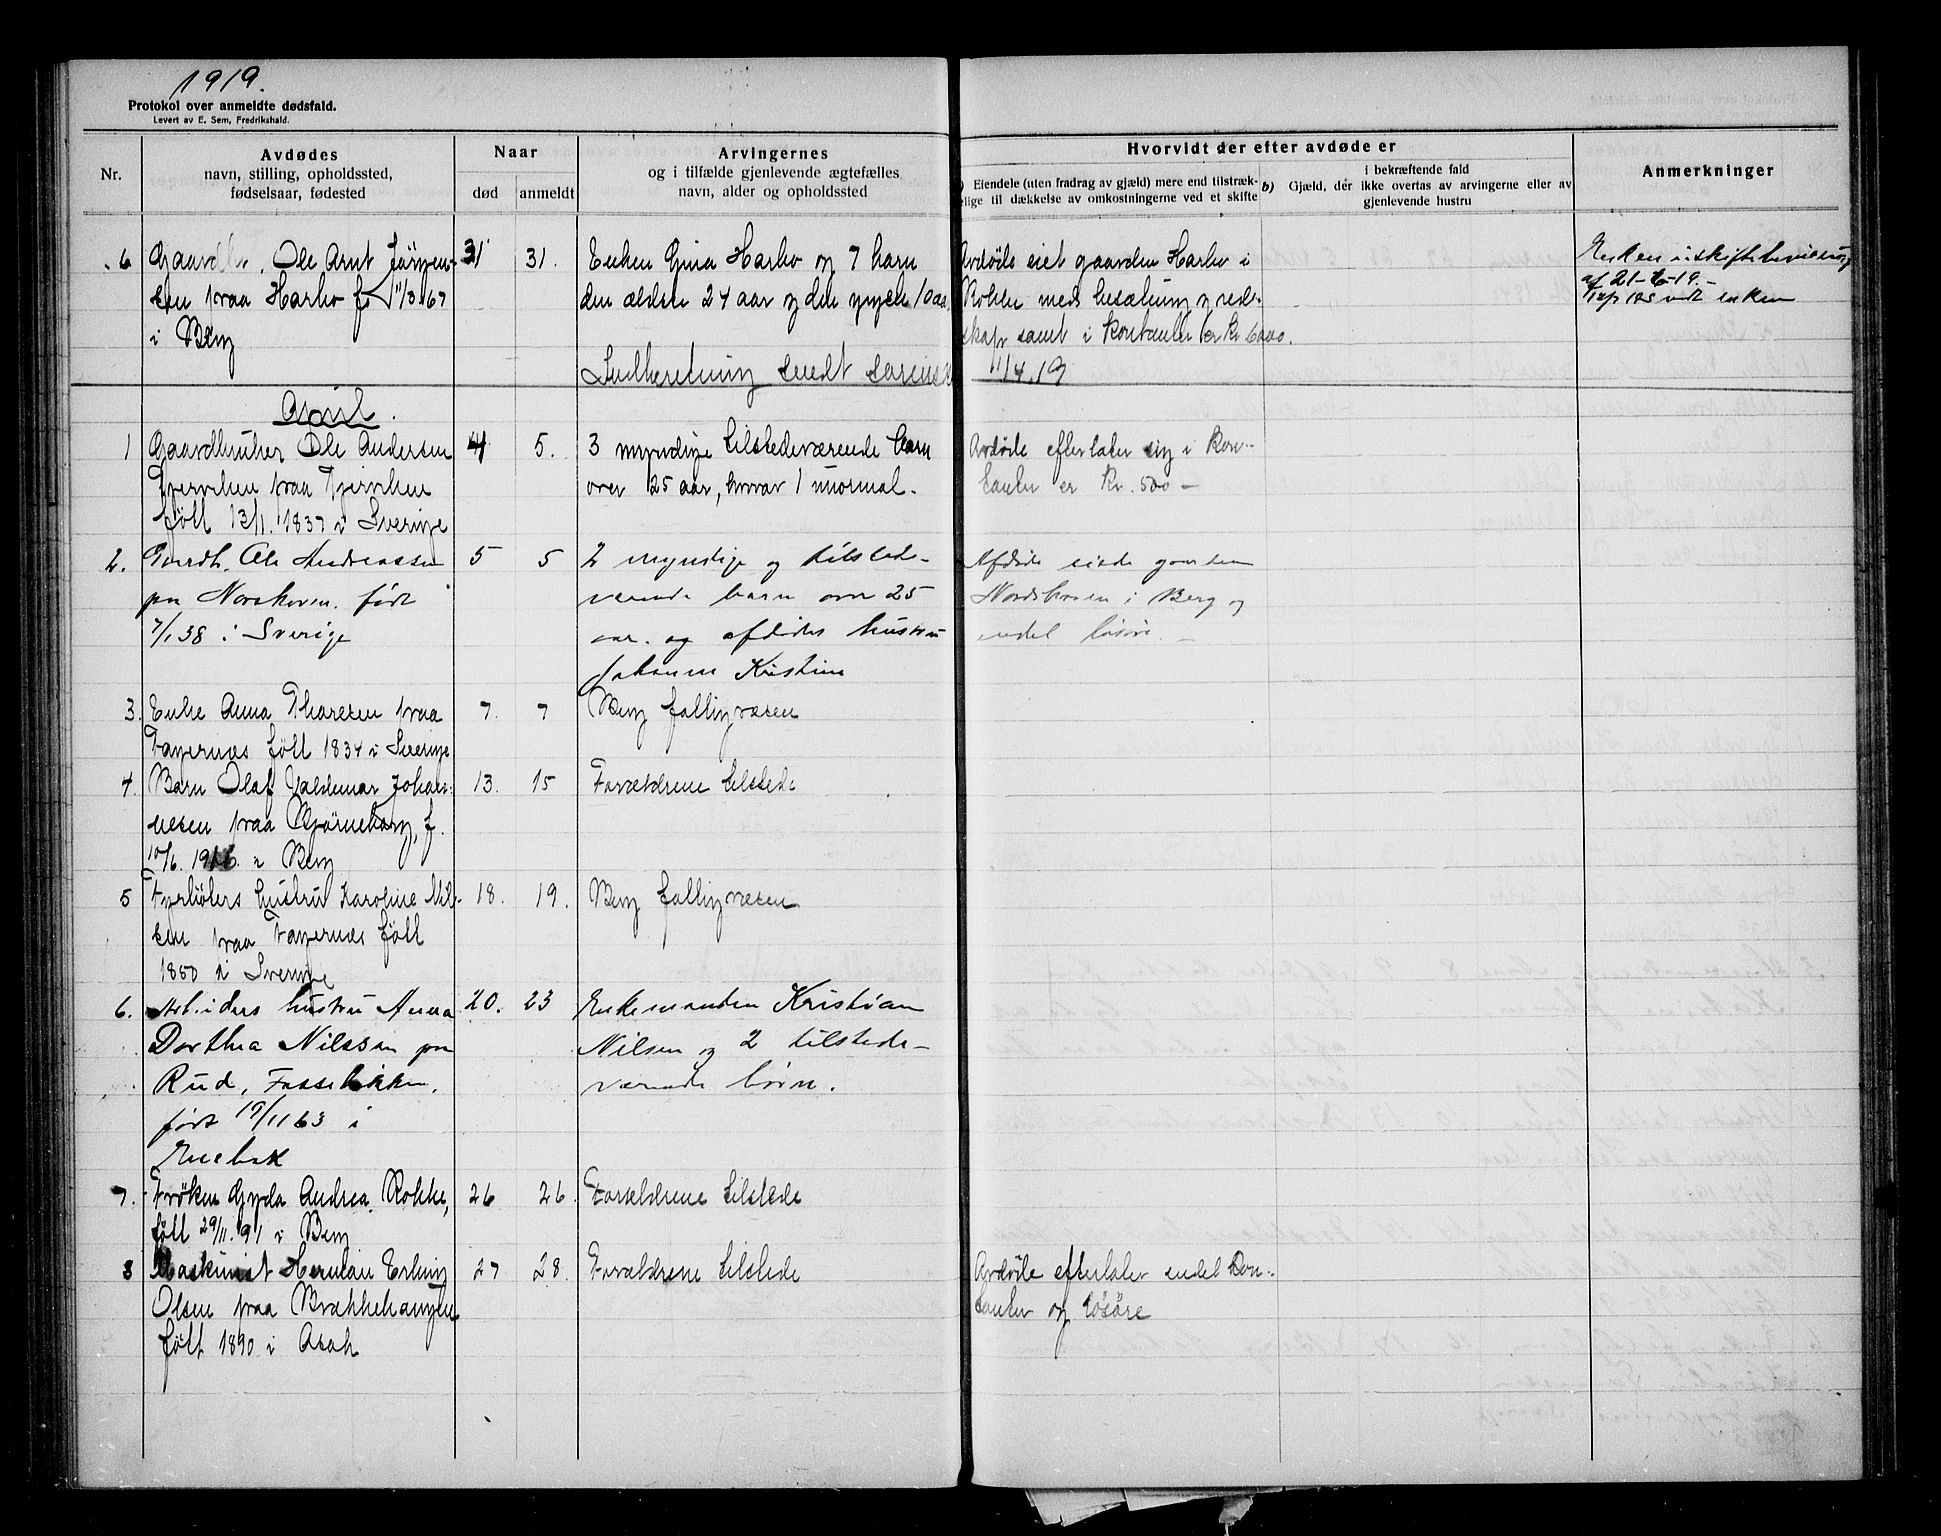 1919.
Protokol over anmeldte dødsfald.
Levert av E. Sem, Fredrikshald.
Nr.
Avdødes
navn, stilling, opholdssted,
fødselsaar, fødested
Naar
død
anmeldt
Arvingernes
og i tilfælde gjenlevende ægtefælles
navn, alder og opholdssted
Hvorvidt der efter avdøde er
Eiendele (uten fradrag av gjæld) mere end tilstræk-
lige til dækkelse av omkostningerne ved et skifte
i bekræftende fald
b) Gjæld, der ikke overtas av arvingerne eller av
gjenlevende hustru
Anmerkninger
6 Gaardbr. Ole Arnt Jörgen-
sen paa Harbo f. 11/3 67
i Berg
31
31.
Enken Gina Harbo og 7 barn
den ældste 24 aar og den yngste 10 aar
Indberetning sendt
11/4.19
Avdöde eiet gaarden Harbo i
Rokke med besætning og red-
skap samt i kontanter kr 6000.
Enken uskiftebevilling
af 21-6-19.-
enken
April.
1 Gaardbruker Ole Andersen
paa
født 13/11.1837 i Sverige
4
5.
3 myndige tilstedeværende barn
over 25 aar, hvorav 1 unormal.
Avdöde efterlater sig i kon-
tanter kr. 500 -
2. Gaardb. Ole Andreassen
paa Norskoven. født
7/1 38 i Sverige
5
5
2 myndige og tilstede-
værende barn over 25
aar. og afdødes hustru
Johanne Kristine
Afdøde eiede gaarden
Nordskoven i Berg og
endel løsøre. -
3. Enke Anna Thoresen paa
Fagernes født 1834 i Sverige
7.
7
Berg fattigvæsen
4. Barn Olaf Valdemar Johan-
nesen paa Bjørneborg, f.
10/6. 1916. i Berg
13.
15
Forældrene tilstede
5 Fyrbøters hustru Karoline Nil-
sen paa Fagernes født
1850 i Sverige
18.
19.
Berg fattigvæsen
6. Arbeiders hustru Anna
Dorthea Nilssen paa
Rud, Fossebækken.
født 19/11 63 i
Enebak
20.
23
Enkemanden Kristian
Nilsen og 2 tilstede-
værende børn.
7. Frøken Gyda Andrea Rokke,
født 29/11. 91 i Berg
26
26.
Forældrene tilstede
8 Maskinist Herman Erling
Olsen paa
født 1890 i Asak
27
28.
Forældrene tilstede
Avdöde efterlater endel kon-
tanter og løsøre